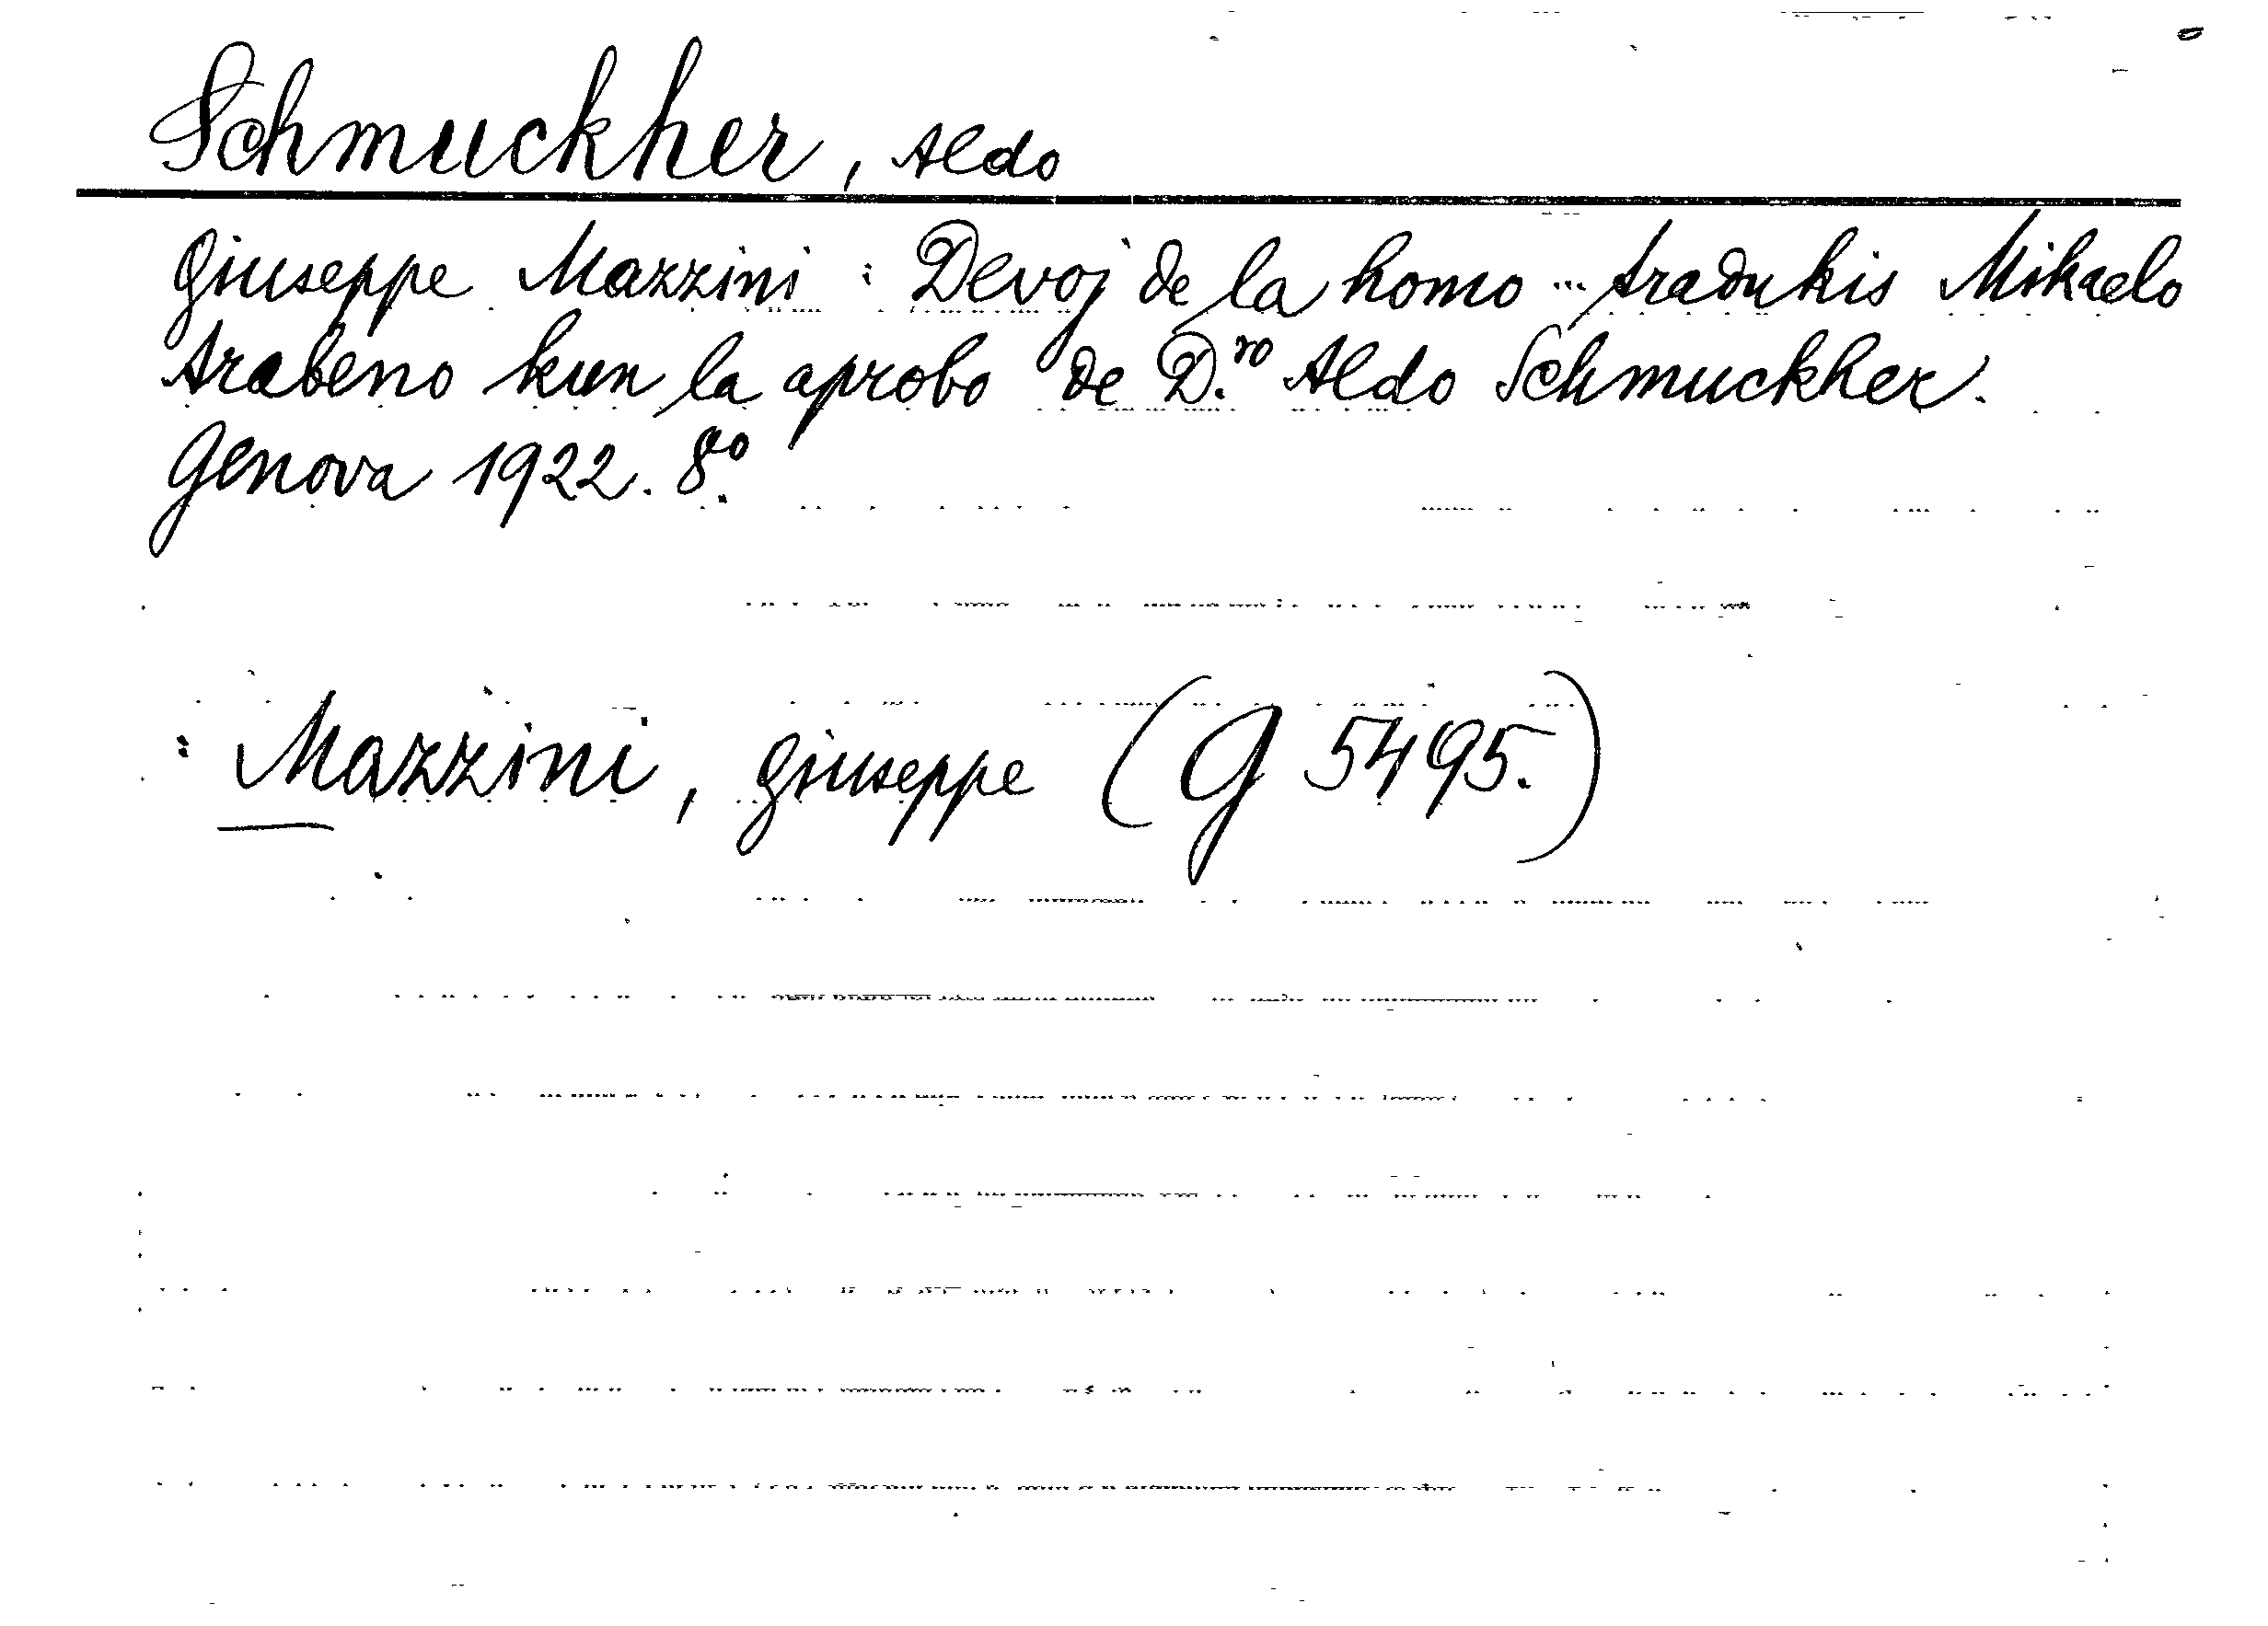 Schmuckher, Aldo
Giuseppe Mazzini : Devoj de la homo ... tradukis Mikaelo
Arabeno kun la aprobo de D.ro Aldo Schmuckher.
Genova 1922. 8o.
: Mazzini, Giuseppe (G 5495.)